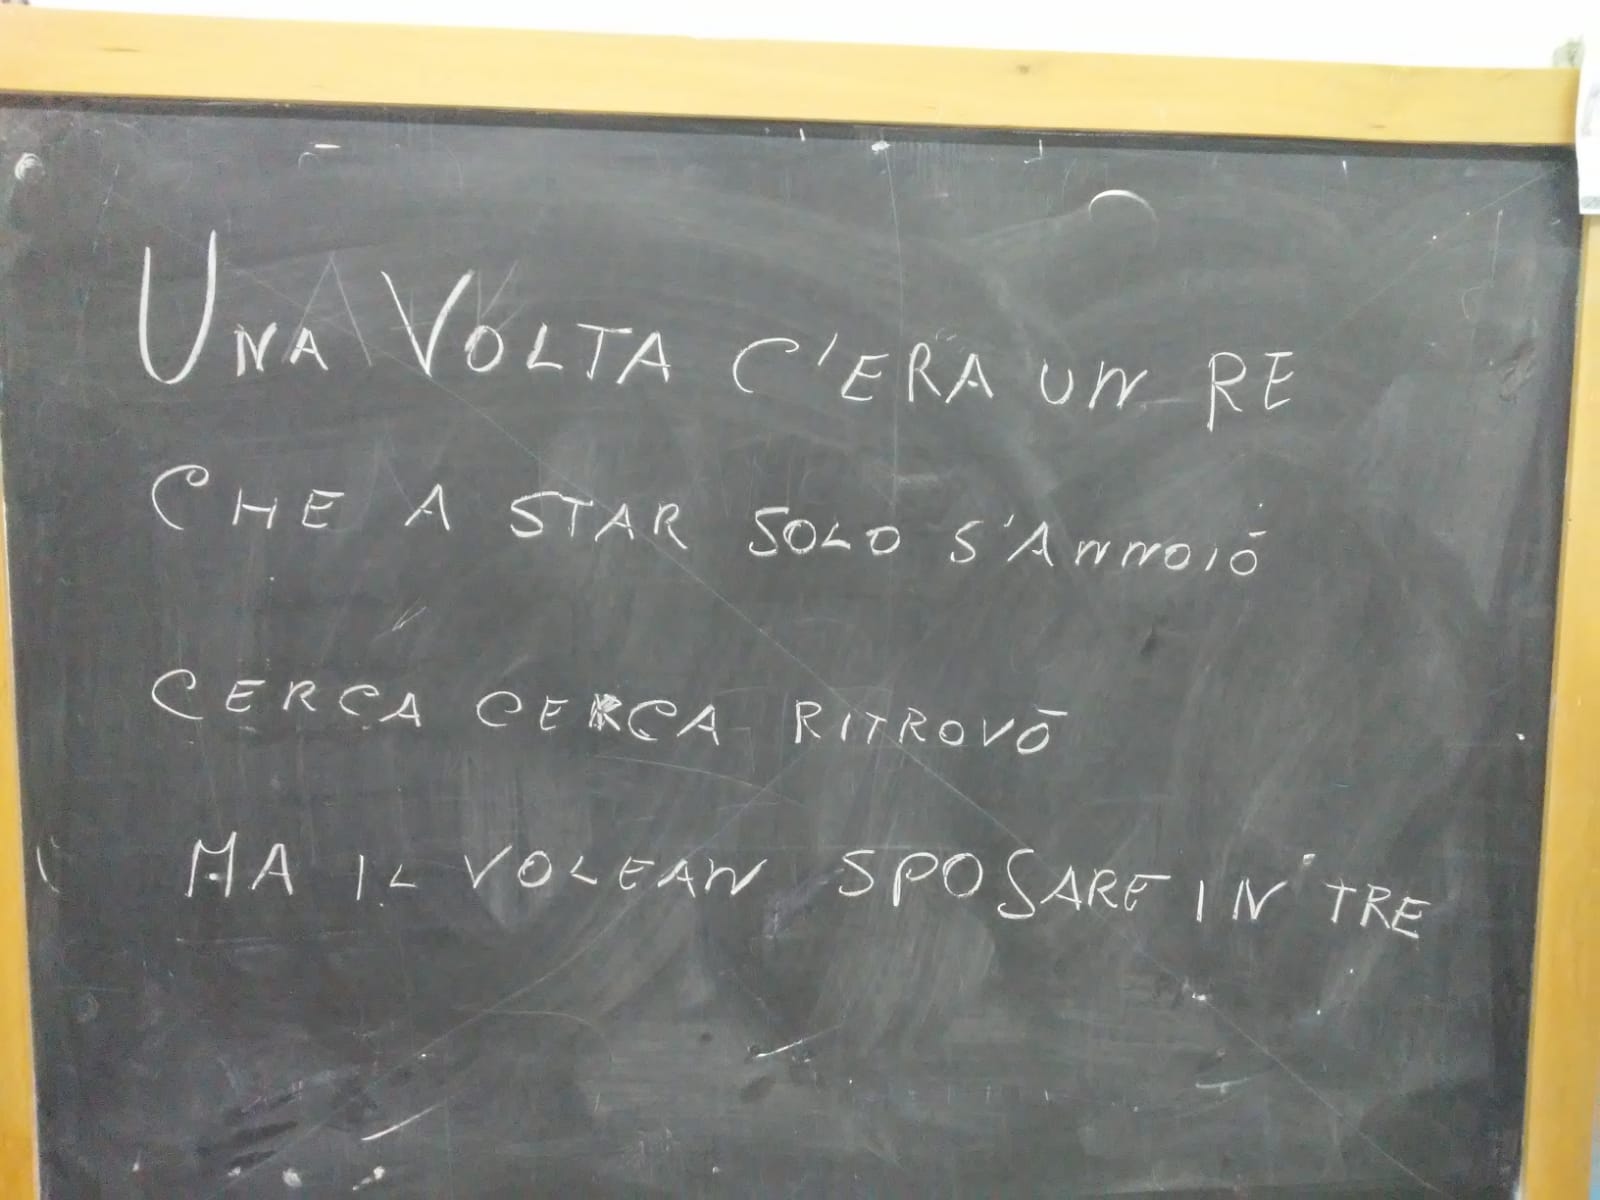 UNA VOLTA C'ERA UN RE
CHE A STAR SOLO S'ANNOIÒ
CERCA CERCA RITROVÒ
MA IL VOLEAN SPOSARE IN TRE